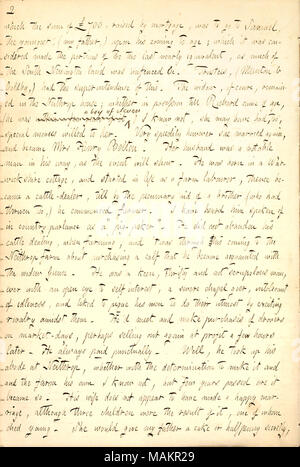 which the sum of £700 raised by mortgage, was to go to Samuel,
the youngest, (my father) upon his coming to age; which it was con-
sidered made the portions of the two last nearly equivalent, as much of
the South Newington land was inferenced &c. Trustees, (Minton &
Colby,) had the superintendence of this. The widow, of course, remain-
ed in the Nethrop house; whether in provision till Richard came of age,
she was I know not, she may have had the
special monies willed to her. Very speedily however she married again,
and became Mrs Prior Bolton. Her husband was a notable
man in his way, as the event will show. He was born in a War-
wickshire cottage, and started in life as a farm labourer, thence
became a cattle-dealer, till by the pecuniary aid of a brother (who had
thriven too,) he commenced farmer. I have heard him spoken of
in country parlance as a pig-poker. He did not abandon his
cattle dealing when farming, and it was through his coming to the
Nethrop farm about purchasing a calf that he became acquainted with
the widow Gunn. He was a keen, thrifty and not scrupulous man,
ever with an open eye to self interest, a sworn chapel goer, intolerant
of idleness, and liked to prove his men to do their utmost by exciting
rivalry amidst them. He'd meet and make purchases of drovers
on market-days, perhaps selling out again at profit a few hours
later. He always paid punctually. Well, he took up his
abode at Nethrop, whether with the determination to make it and
and the farm his own I know not, but four years passed ere it
became so. This wife does not appear to have made a happy mar-
riage, although three children were the result of it, one of whom
died young. She would give my father a cake or halfpenny secretly,
alamy
Image ID: MAKR29
www.alamy.com